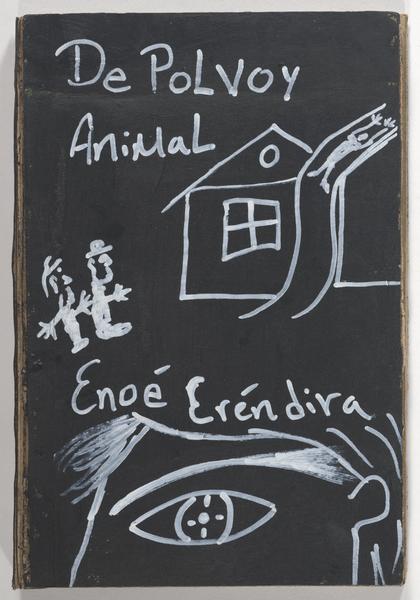 De PoLvoy
AniMaL
Enoé Eréndira